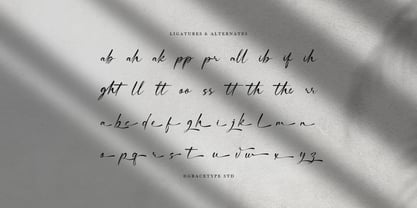 LIGATURES & ALTERNATES
ab ah ak pp pr all ib if ih
ght ll tt oo ss tt th the rr
a b s d e f g h i j k l m n
o p q r s t u v w x y z